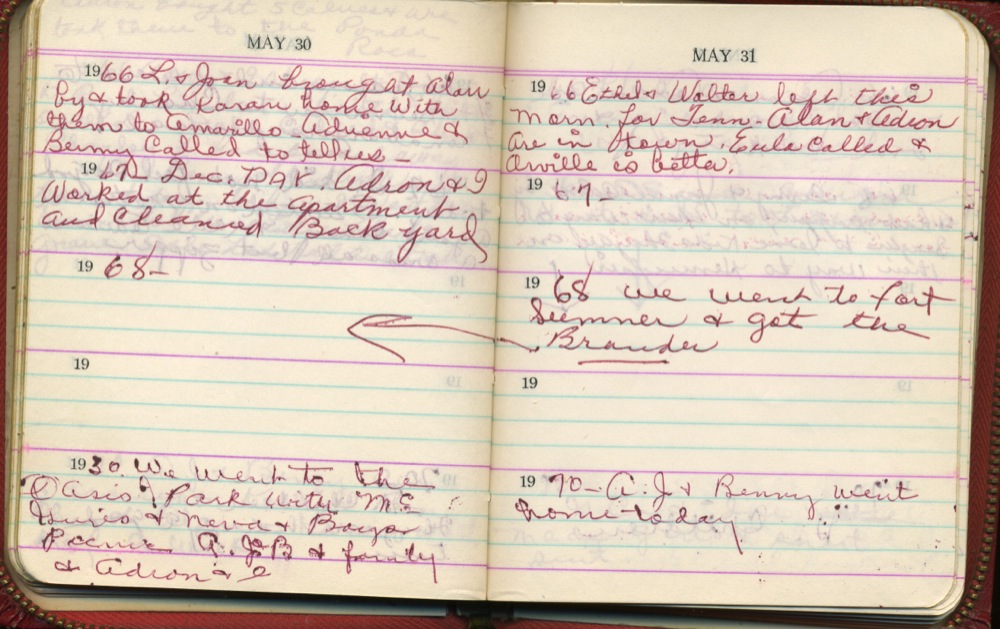 MAY 30
1966 L. & Joan brought Alan
by & took Karan home with
them to Amarillo. Adrienne &
Benny called to tell us -
1967 - Dec. DAY. Adron & I
worked at the apartment
and cleaned Back yard
1968 -
19
1930. We went to the
Oasis Park with Mc
& Neva & Boys
A. J. B & family
& Adron & I
MAY 31
1966 Ethel & Walter left this
morn. for Tenn - Alan & Adron
are in town. Eula called &
Orville is better.
1967 -
1968 we went to Fort
Sumner & got the
Brander
19
1970 - A. J. & Benny went
home today